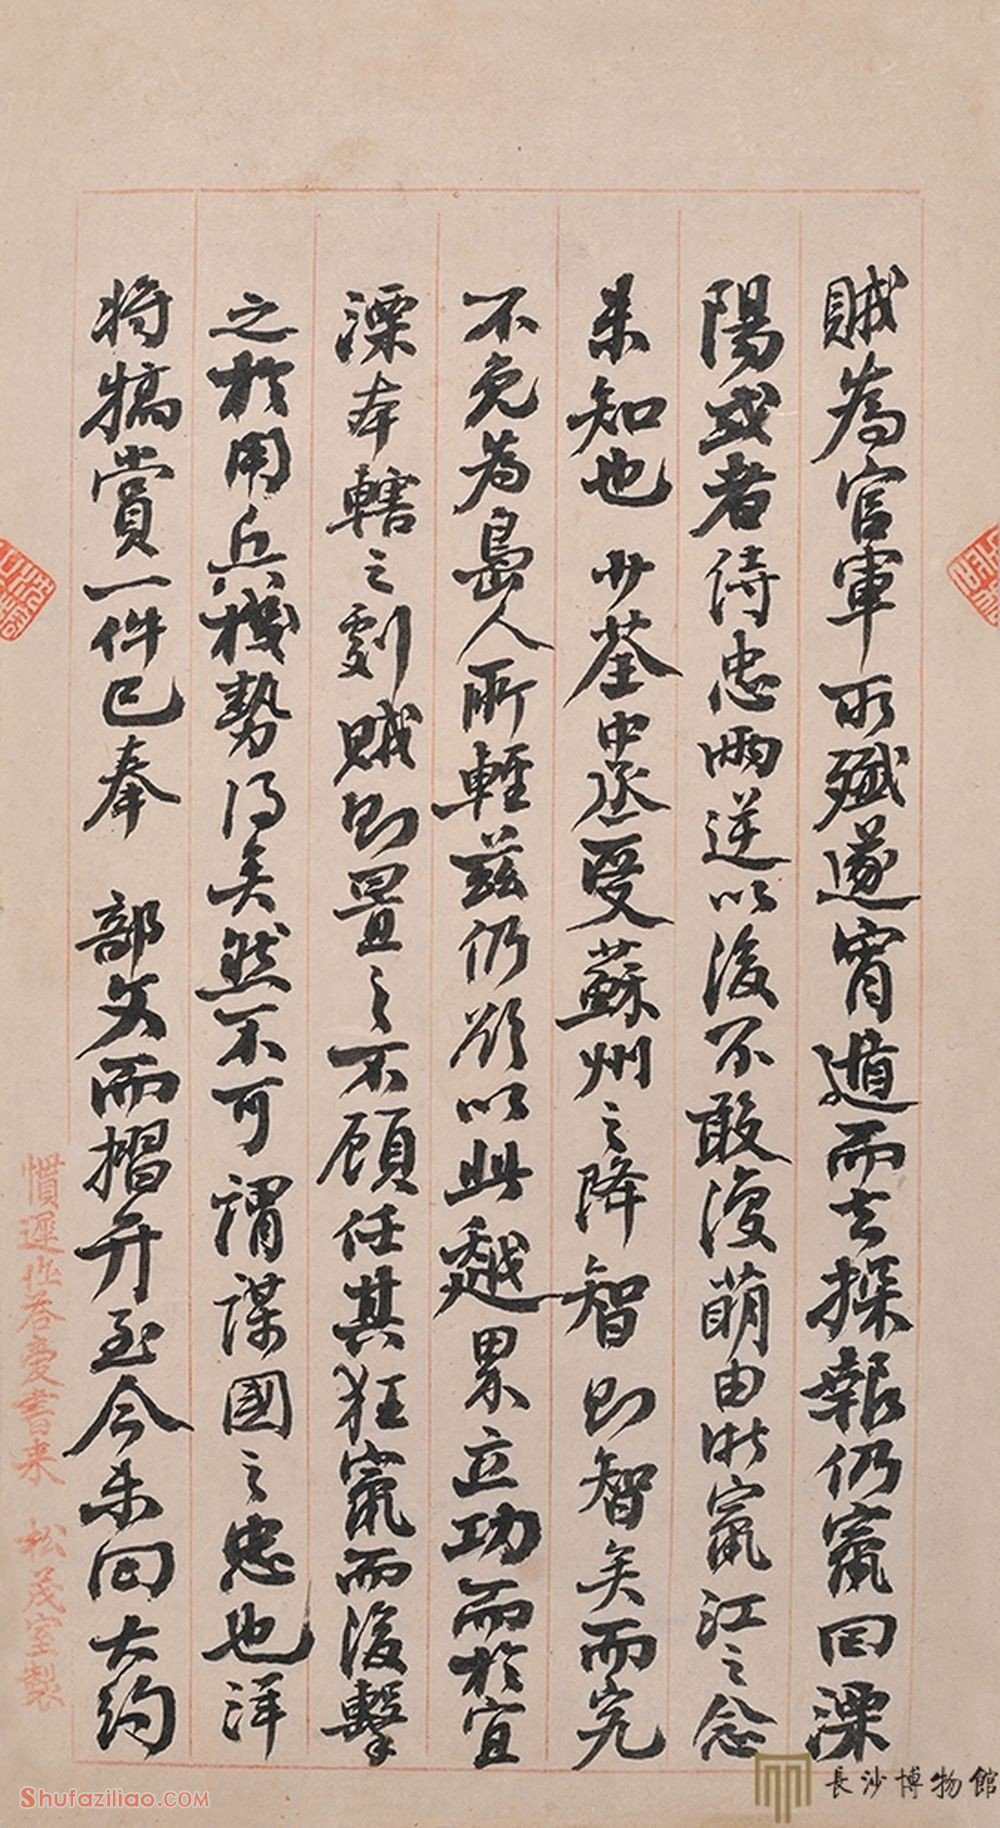 賊為官軍所殲遂宵遁而去探報仍竄回溧
陽或者侍忠兩逆以後不敢復萌由浙竄江之念
未知也 少荃中丞受蘇州之降智則智矣而究
不免為島人所輕茲仍欲以此越累立功而於宜
溧本轄之劇賊則置之不顧任其狂竄而後擊
之於用兵機勢得矣然不可謂謀國之忠也洋
將犒賞一件已奉 部文而摺弁至今未回大約
慣遲作答愛書來 松茂室製
長沙博物館
Shufaziliao.COM